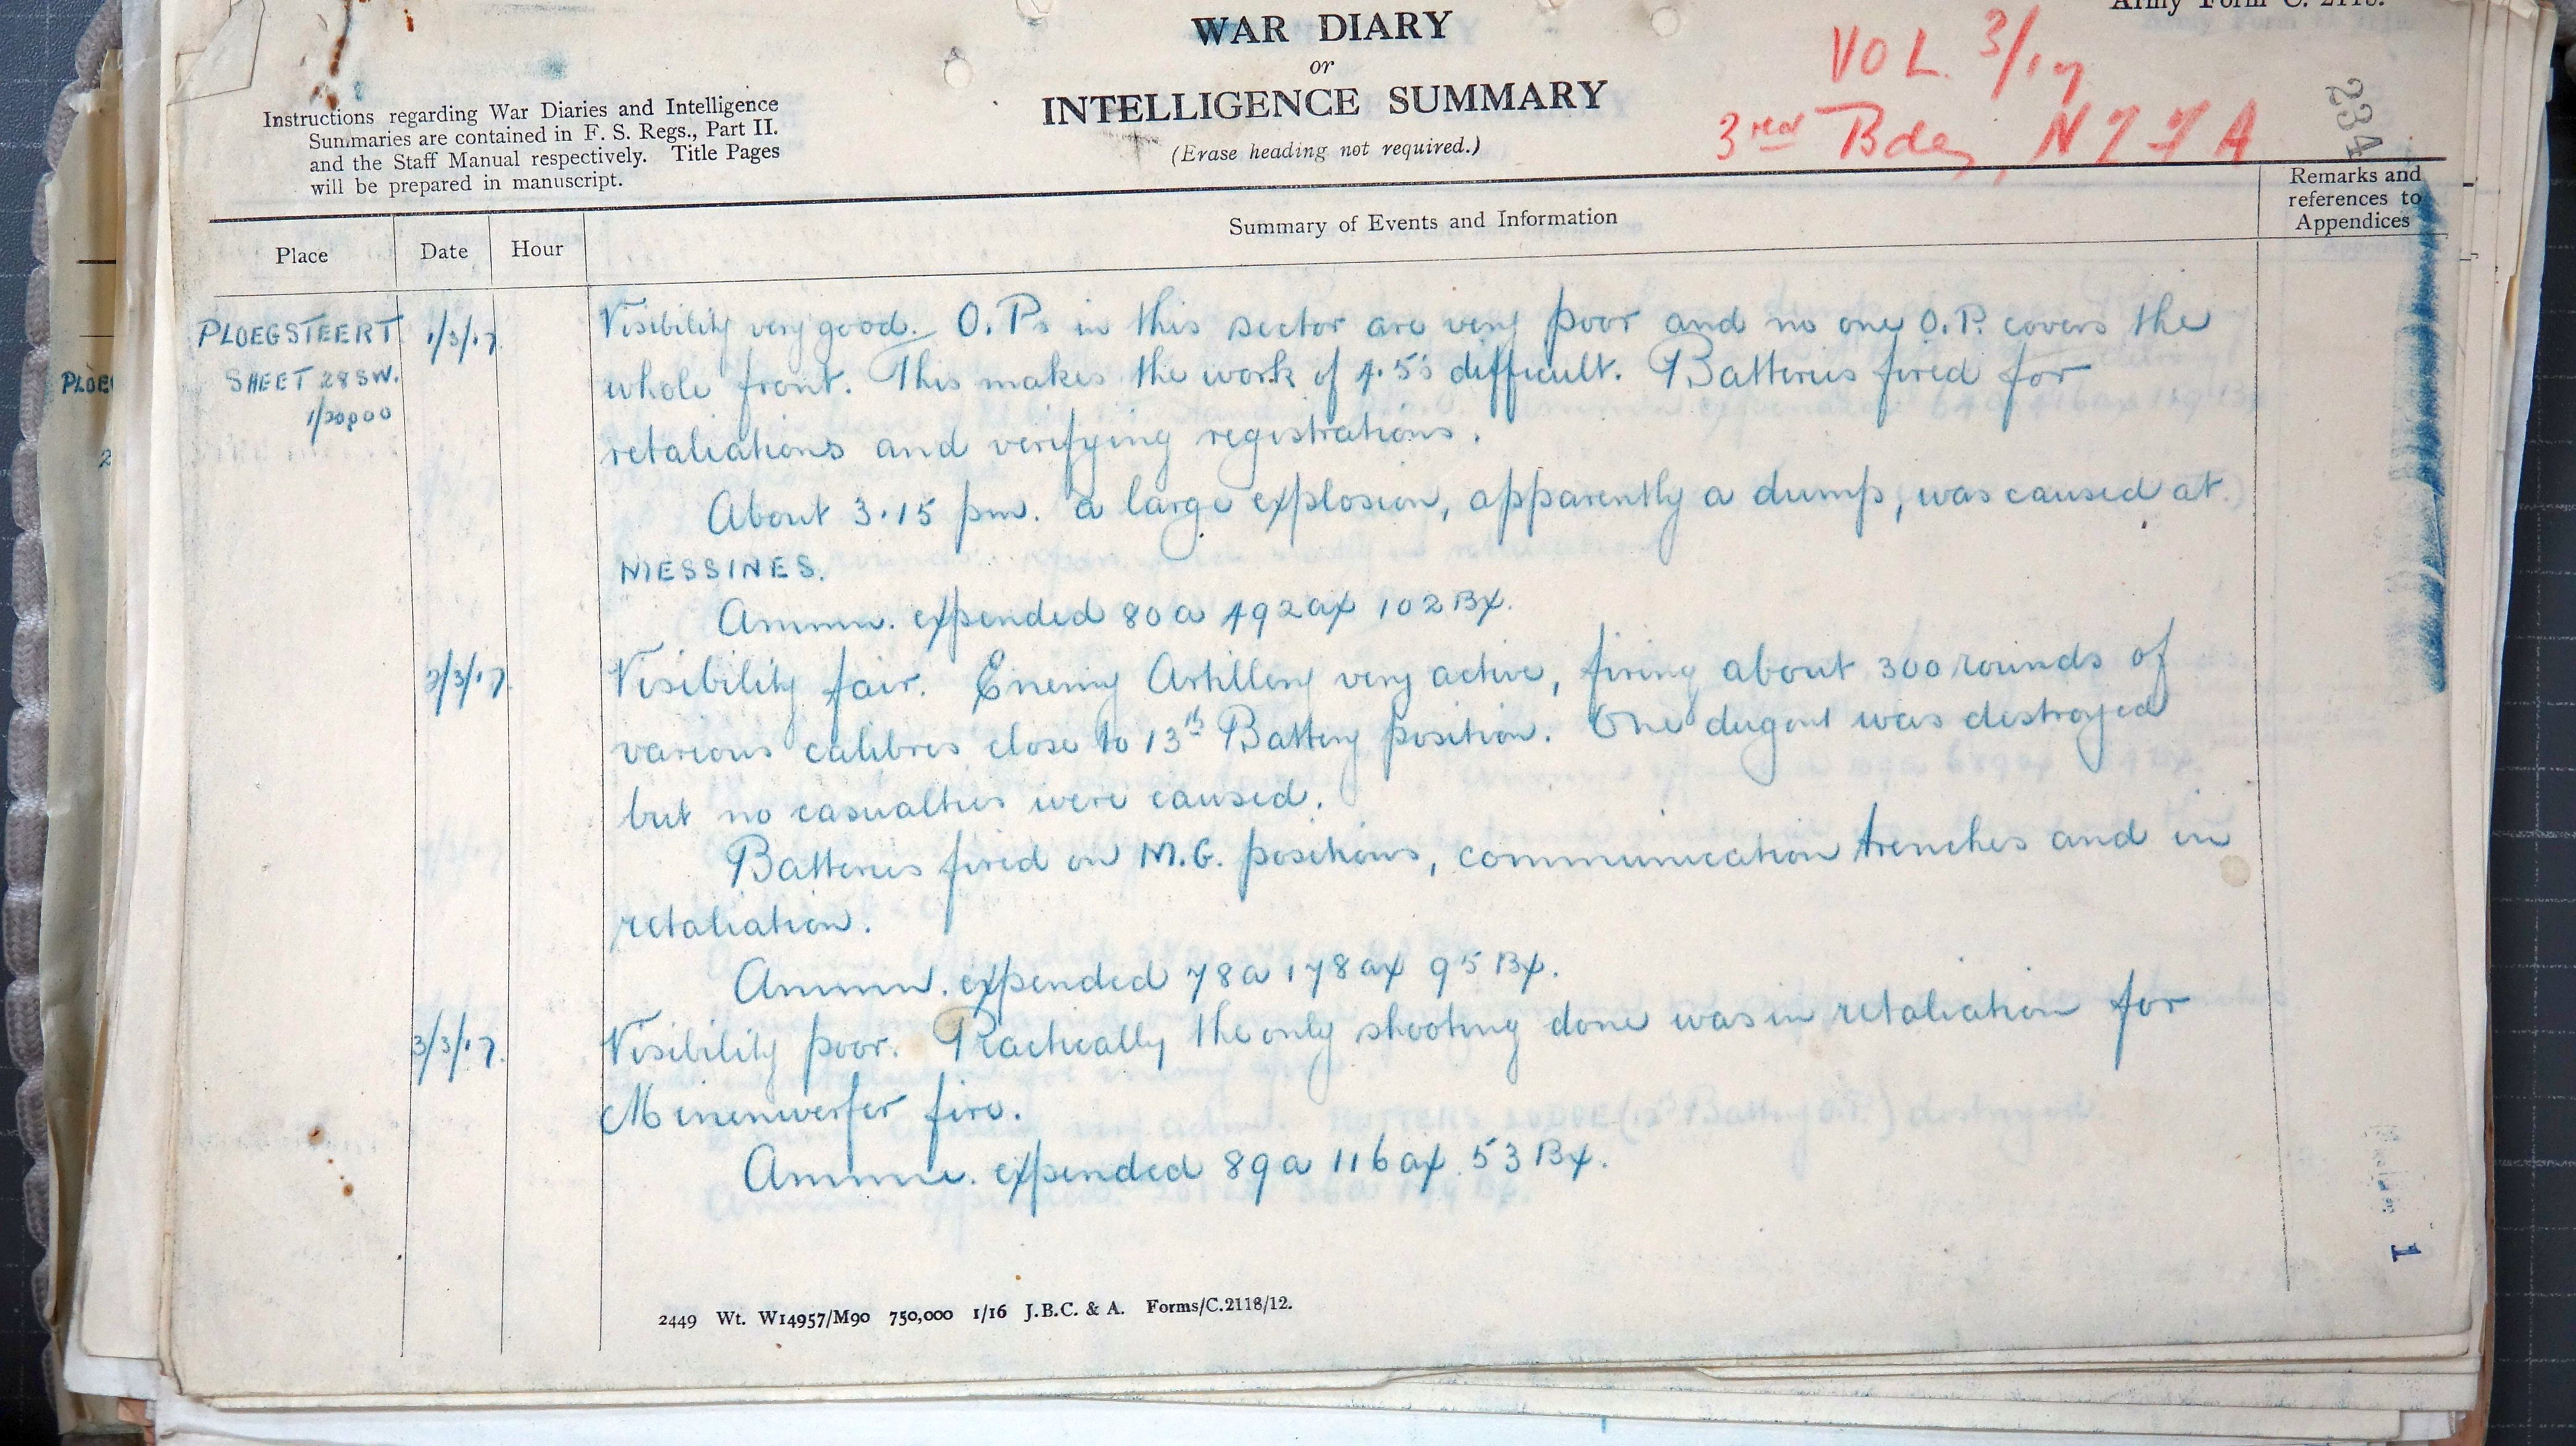 Army Form C. 2118.
WAR DIARY
or
INTELLIGENCE SUMMARY
(Erase heading not required.)
Instructions regarding War Diaries and Intelligence
Summaries are contained in F. S. Regs., Part II.
and the Staff Manual respectively. Title Pages
will be prepared in manuscript.
VOL. 3/17
3rd Bde, NZFA
234
Place
Date
Hour
Summary of Events and Information
Remarks and
references to
Appendices
PLOEGSTEERT
SHEET 28 SW.
1/20000
1/3/17.
Visibility very good. O.Ps in this sector are very poor and no one O.P. covers the
whole front. This makes the work of 4.5s difficult. Batteries fired for
retaliations and verifying registrations.
About 3.15 pm. a large explosion, apparently a dump, was caused at
MESSINES.
Ammn. expended 80a 492ax 102Bx.
2/3/17.
Visibility fair. Enemy Artillery very active, firing about 300 rounds of
various calibres close to 13th Battery position. One dugout was destroyed
but no casualties were caused.
Batteries fired on M.G. positions, communication trenches and in
retaliation.
Ammn. expended 78a 178ax 95Bx.
3/3/17.
Visibility poor. Practically the only shooting done was in retaliation for
Minenwerfer fire.
Ammn. expended 89a 116ax 53Bx.
2449 Wt. W14957/M90 750,000 1/16 J.B.C. & A. Forms/C.2118/12.
1